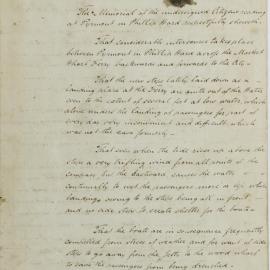 The Memorial of the undersigned Citizens residing
at Pyrmont in Phillip Ward respectfully sheweth.
That considerable intercourse takes place
between Pyrmont in Phillip Ward across the Market
Wharf Ferry backwards and forwards to the City.
That the new steps lately laid down as a
landing place at the Ferry are quite out of the Water
even to the extent of several feet at low water, which
alone makes the landing of passengers for part of
every day very inconvenient and difficult which
was not the case formerly.
That even when the tide rises up above the
steps a very trifling wind from all points of the
compass but the Eastward causes the water
continually to wet the passengers more or less when
landing owing to the steps being all in front
and no side steps to create shelter for the boats.
That the boats are in consequence frequently
compelled from stress of weather and for want of side
steps to go away from the jetty to the wood wharf
to save the passengers from being drenched.